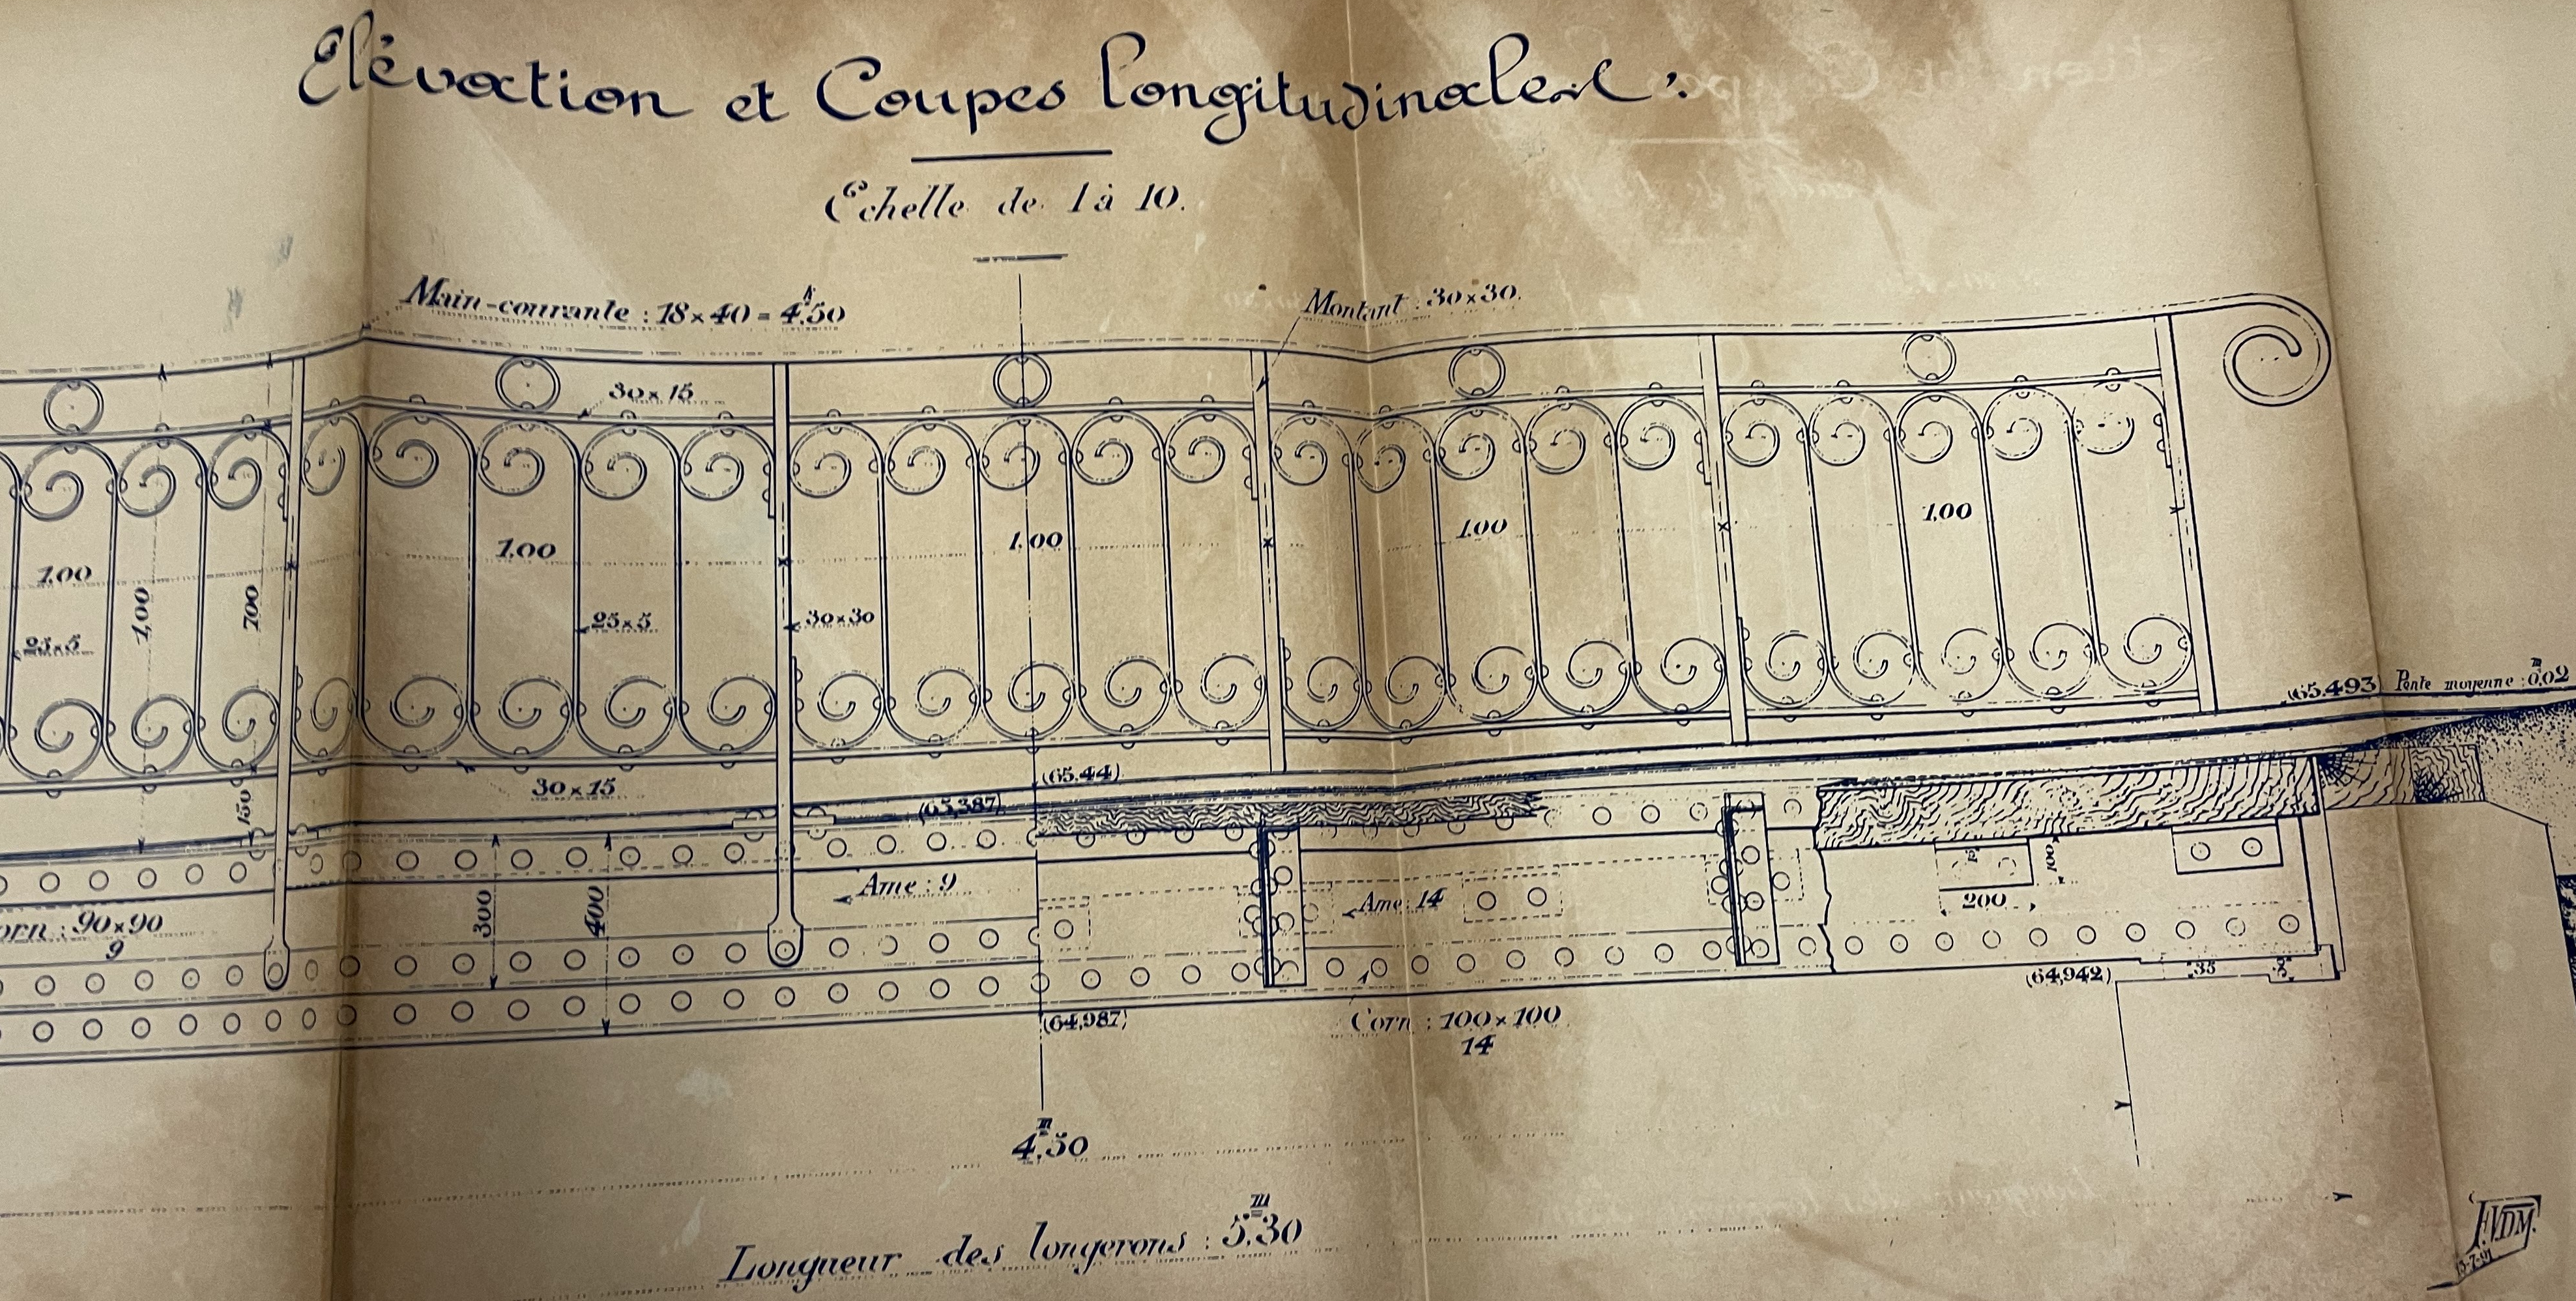 Elévation et Coupes longitudinales :
Echelle de 1 à 10.
Main-courante : 18×40 = 4k,50
Montant : 30×30.
30×15
1,00
1,00
1,00
1,00
1,00
1,00
700
25×5
25×5
30×30
30×15
150
(65,44)
(65,387)
(65,493)
Pente moyenne : 0m,02
Corn : 90×90
9
300
400
Ame : 9
Ame : 14
100
200
(64,942)
35
(64,987)
Corn : 100×100
14
4m,50
Longueur des longerons : 5m,30
F.VDM.